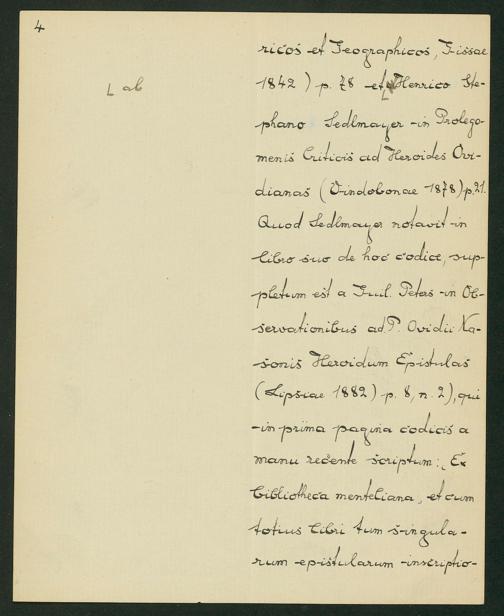 4
ricos et Geographicos, Gissae
1842) p. 78 et Henrico Ste-
ab
phano Sedlmayer in Prolego-
menis Criticis ad Heroides Ovi-
dianas (Vindobonae 1878) p. 21.
Quod Sedlmayer notavit in
libro suo de hoc codice, sup-
pletum est a Guil. Peters in Ob-
servationibus ad P. Ovidii Na-
sonis Heroidum Epistulas
(Lipsiae 1882) p. 8, n. 2), qui
in prima pagina codicis a
manu recente scriptum: Ex
bibliotheca menteliana, et cum
totius libri tum singula-
rum epistularum inscriptio-